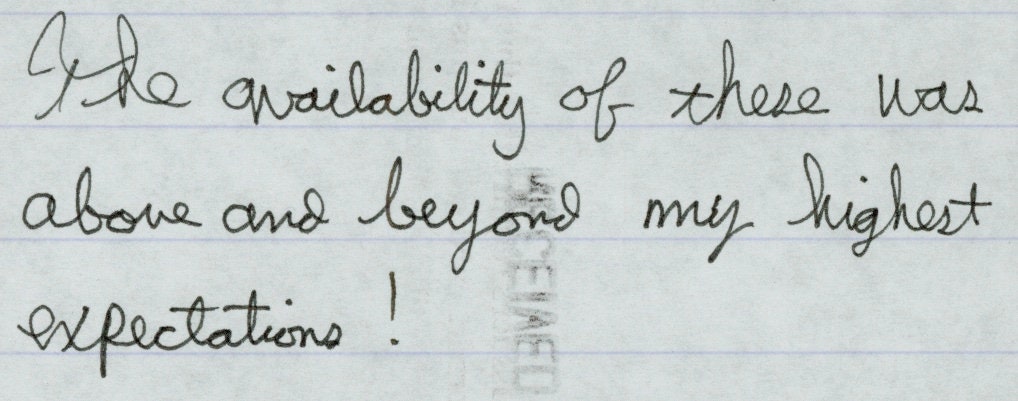 The availability of these was
above and beyond my highest
expectations!
RECEIVED